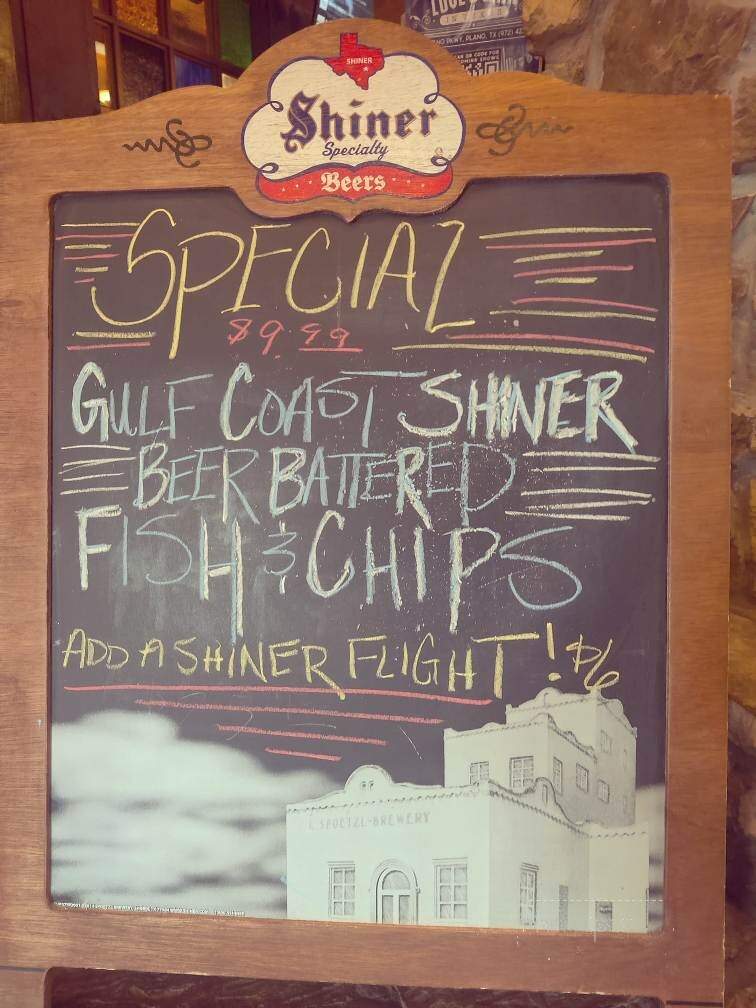 PLANO, TX (972)
SHINER
Shiner
Specialty
Beers
SPECIAL
$9.99
GULF COAST SHINER
BEER BATTERED
FISH & CHIPS
ADD A SHINER FLIGHT! $6
SPOETZL-BREWERY